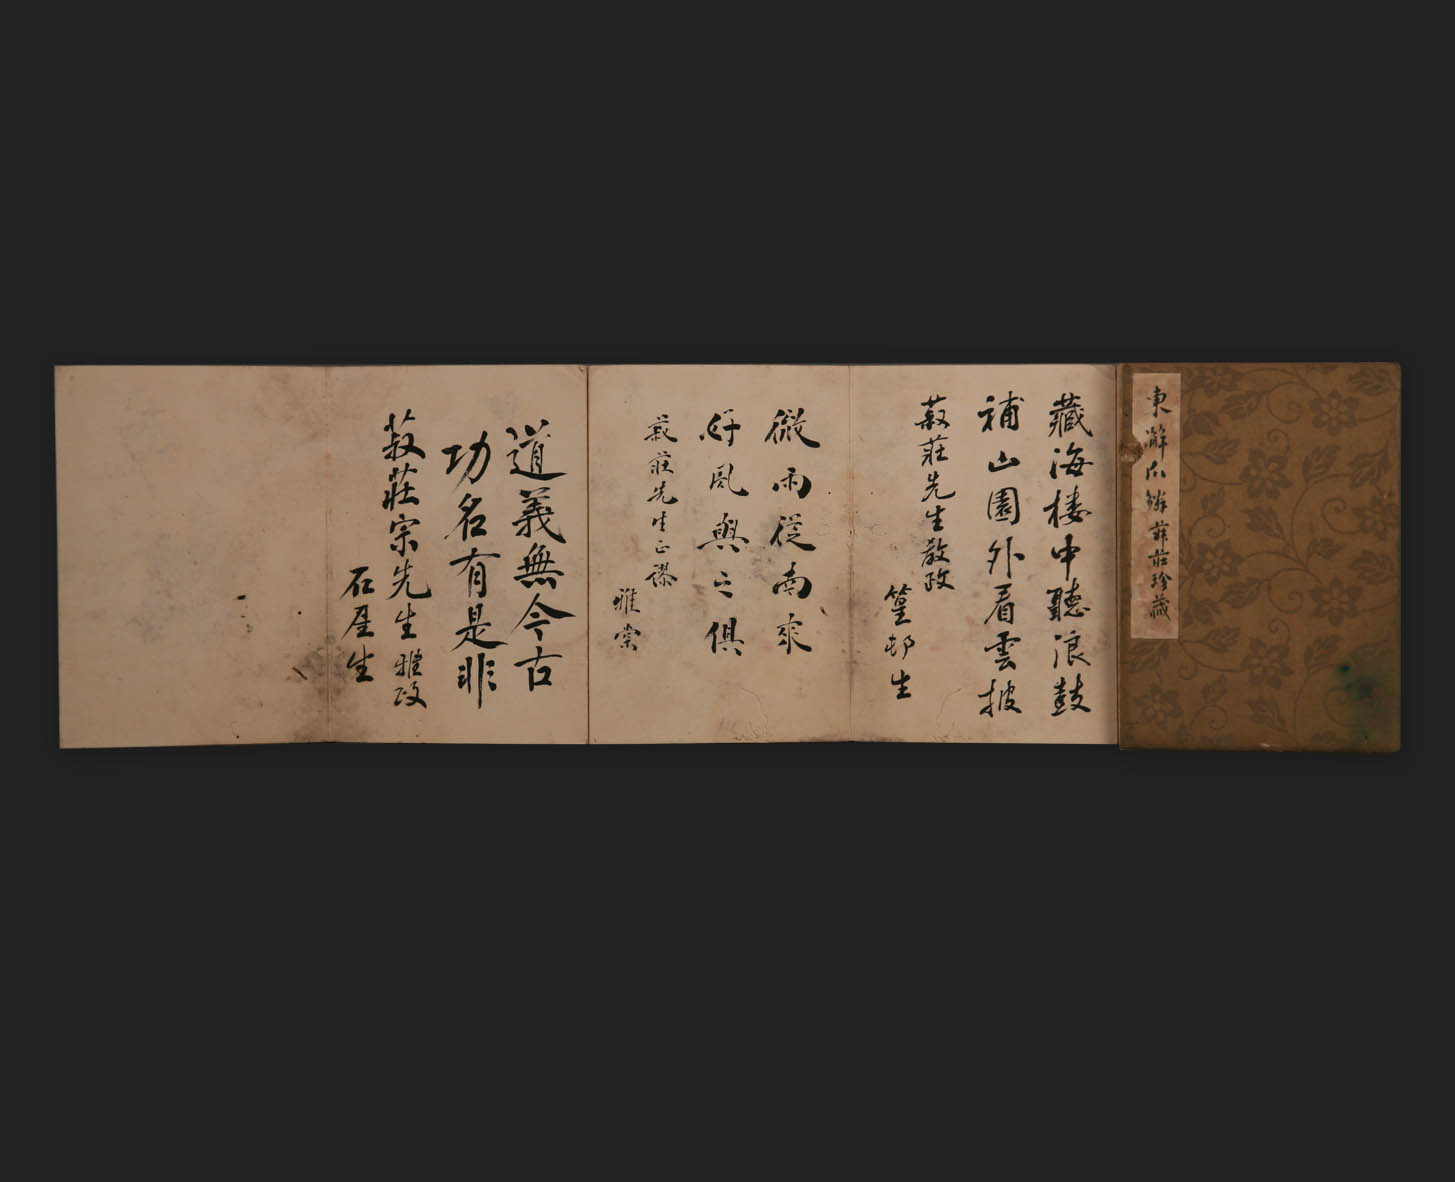 東瀣爪鱗菽莊珍藏
藏海樓中聽浪鼓
補山園外看雲披
菽莊先生教政
篁邨生
微雨從南來
好風與之俱
菽莊先生正謬
雅棠
道義無今古
功名有是非
菽莊宗先生雅政
石厓生